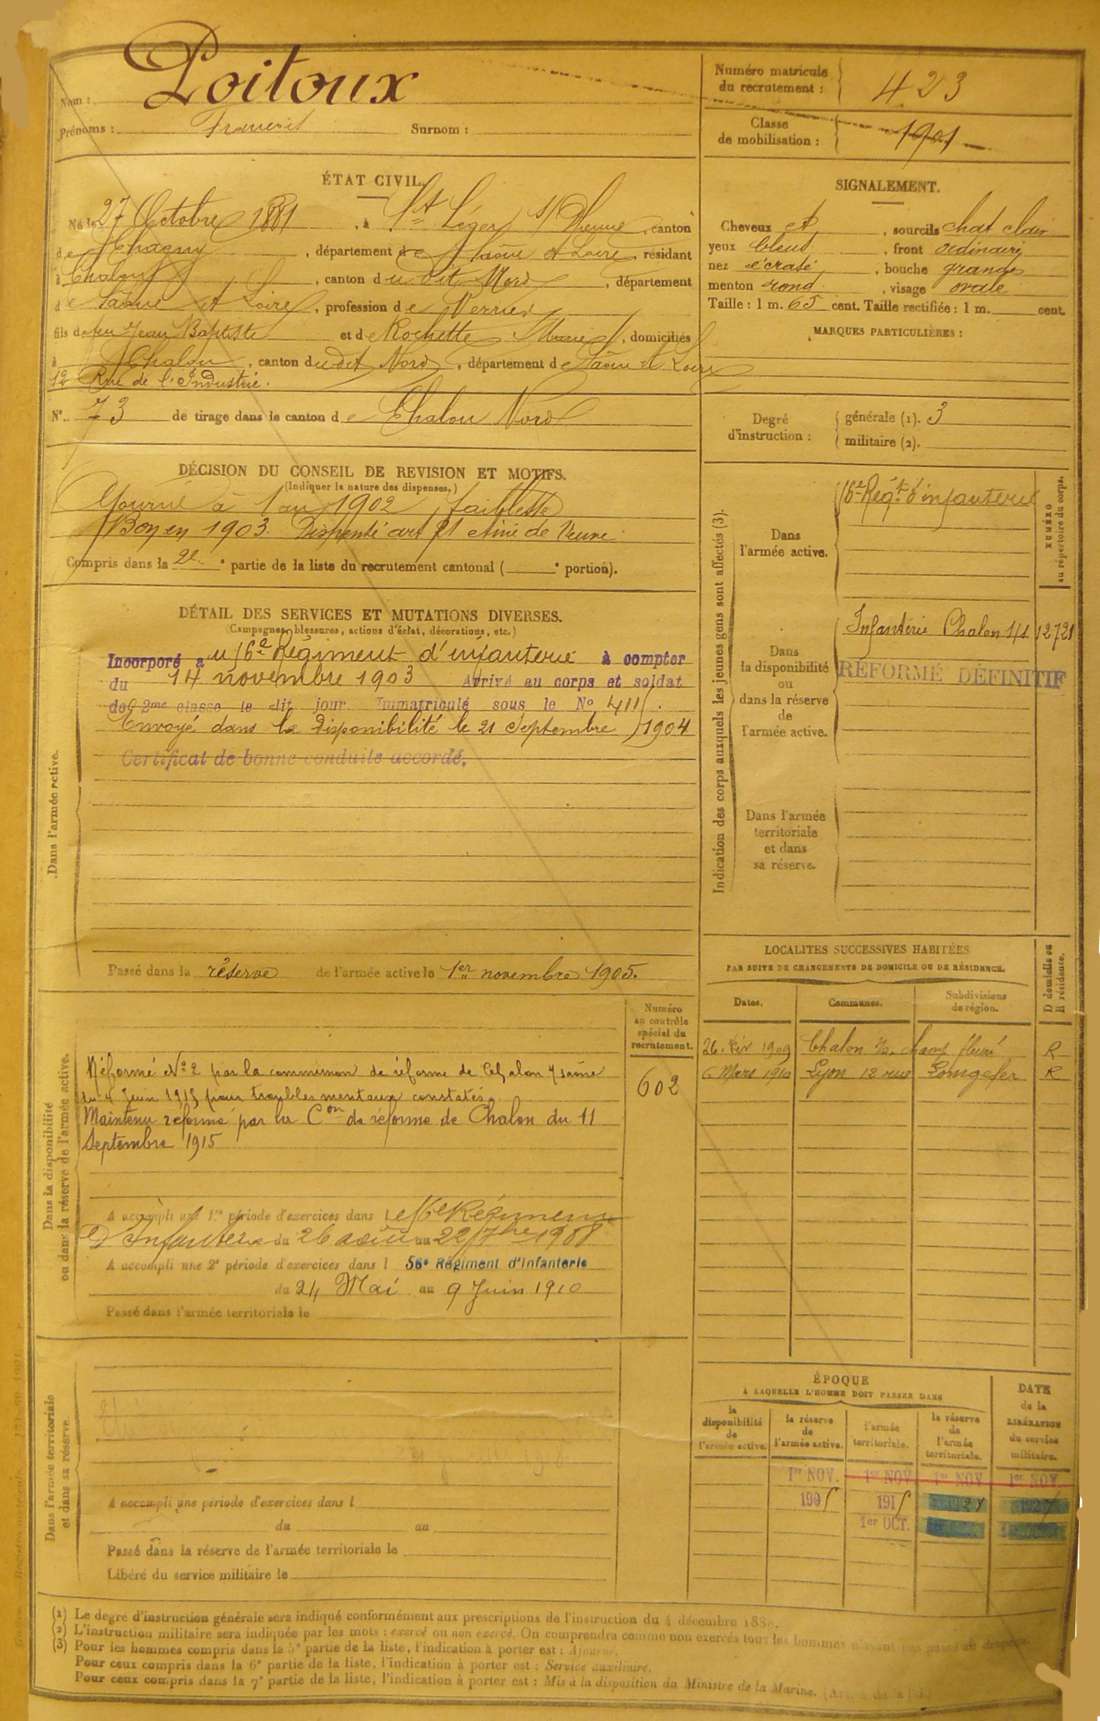 Nom : Poitoux
Prénoms : Surnom :
Numéro matricule du recrutement : 423
Classe de mobilisation : 1901
ÉTAT CIVIL.
Né le 27 Octobre 1881, à St Léger s/ Dheune, canton
de Chagny, département de Saône et Loire, résidant
à Chalon, canton du dit Nord, département
de Saône et Loire, profession de Verrier
fils de feu Jean Baptiste et de Rochette Marie, domiciliés
à Chalon, canton du dit Nord, département de Saône et Loire
12 Rue de l'Industrie.
N°. 73 de tirage dans le canton de Chalon Nord
SIGNALEMENT.
Cheveux et, sourcils chat clair
yeux bleus, front ordinaire
nez écrasé, bouche grande
menton rond, visage ovale
Taille : 1 m. 65 cent. Taille rectifiée : 1 m. cent.
MARQUES PARTICULIÈRES :
Degré d'instruction : générale (1). 3
militaire (2).
DÉCISION DU CONSEIL DE REVISION ET MOTIFS.
(Indiquer la nature des dispenses.)
Ajourné à 1 an 1902 faiblesse
Bon en 1903. Dispensé art 21 aîné de veuve
Compris dans la 2e partie de la liste du recrutement cantonal ( portion).
DÉTAIL DES SERVICES ET MUTATIONS DIVERSES.
(Campagnes, blessures, actions d'éclat, décorations, etc.)
Dans l'armée active.
Incorporé au 16e Régiment d'infanterie à compter
du 14 novembre 1903 Arrivé au corps et soldat
de 2me classe le dit jour Immatriculé sous le No 411.
Envoyé dans la Disponibilité le 21 Septembre 1904
Certificat de bonne conduite accordé.
Passé dans la réserve de l'armée active le 1er novembre 1905.
Indication des corps auxquels les jeunes gens sont affectés (3).
Dans l'armée active.
16e Régt d'infanterie
NUMÉRO au répertoire du corps.
Dans la disponibilité ou dans la réserve de l'armée active.
Infanterie Chalon
RÉFORMÉ DÉFINITIF
Dans l'armée territoriale et dans sa réserve.
LOCALITÉS SUCCESSIVES HABITÉES
PAR SUITE DE CHANGEMENTS DE DOMICILE OU DE RÉSIDENCE.
Dates. Communes. Subdivisions de région. D domicile ou R résidence.
26 Fév 1909 Chalon champ fleuri R
6 Mars 1910 Lyon 12 rue R
Dans la disponibilité ou dans la réserve de l'armée active.
Numéro au contrôle spécial du recrutement.
602
Réformé No 2 par la commission de réforme de Chalon s/ Saône
du 4 Juin 1915 pour troubles mentaux constatés.
Maintenu réformé par la Con de réforme de Chalon du 11
Septembre 1915
A accompli une 1re période d'exercices dans le 16e Régiment
d'Infanterie du 26 août au 22 7bre 1908
A accompli une 2e période d'exercices dans l 56e Régiment d'Infanterie
du 24 Mai au 9 Juin 1910
Passé dans l'armée territoriale le
Dans l'armée territoriale et dans sa réserve.
A accompli une période d'exercices dans l
du au
Passé dans la réserve de l'armée territoriale le
Libéré du service militaire le
ÉPOQUE
A LAQUELLE L'HOMME DOIT PASSER DANS
DATE de la LIBÉRATION du service militaire.
la disponibilité de l'armée active. la réserve de l'armée active. l'armée territoriale. la réserve de l'armée territoriale.
1er NOV. 1er NOV. 1er NOV. 1er NOV.
1905 1915
1er OCT.
(1) Le degré d'instruction générale sera indiqué conformément aux prescriptions de l'instruction du 4 décembre
(2) L'instruction militaire sera indiquée par les mots : exercé ou non exercé. On comprendra comme non exercés tous les hommes
(3) Pour les hommes compris dans la 5e partie de la liste, l'indication à porter est : Ajourné.
Pour ceux compris dans la 6e partie de la liste, l'indication à porter est : Service auxiliaire.
Pour ceux compris dans la 7e partie de la liste, l'indication à porter est : Mis à la disposition du Ministre de la Marine.